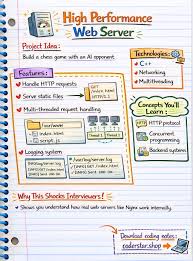 High Performance
Web Server
Project Idea:
Build a chess game with an AI opponent.
Technologies:
C++
Networking
Multithreading
Features:
Handle HTTP requests
Serve static files
Multi-thread request handling
Logging system
GET
/index.html
HTTP/1.1
index.html
script.js
/var/log/server.log
Concepts You'll
Learn:
HTTP protocol
Concurrent
programming
Backend
systems
Why This Shocks Interviewers?
Shows you understand how real web servers like Nginx work internally.
Download coding notes:
coderstar.shop